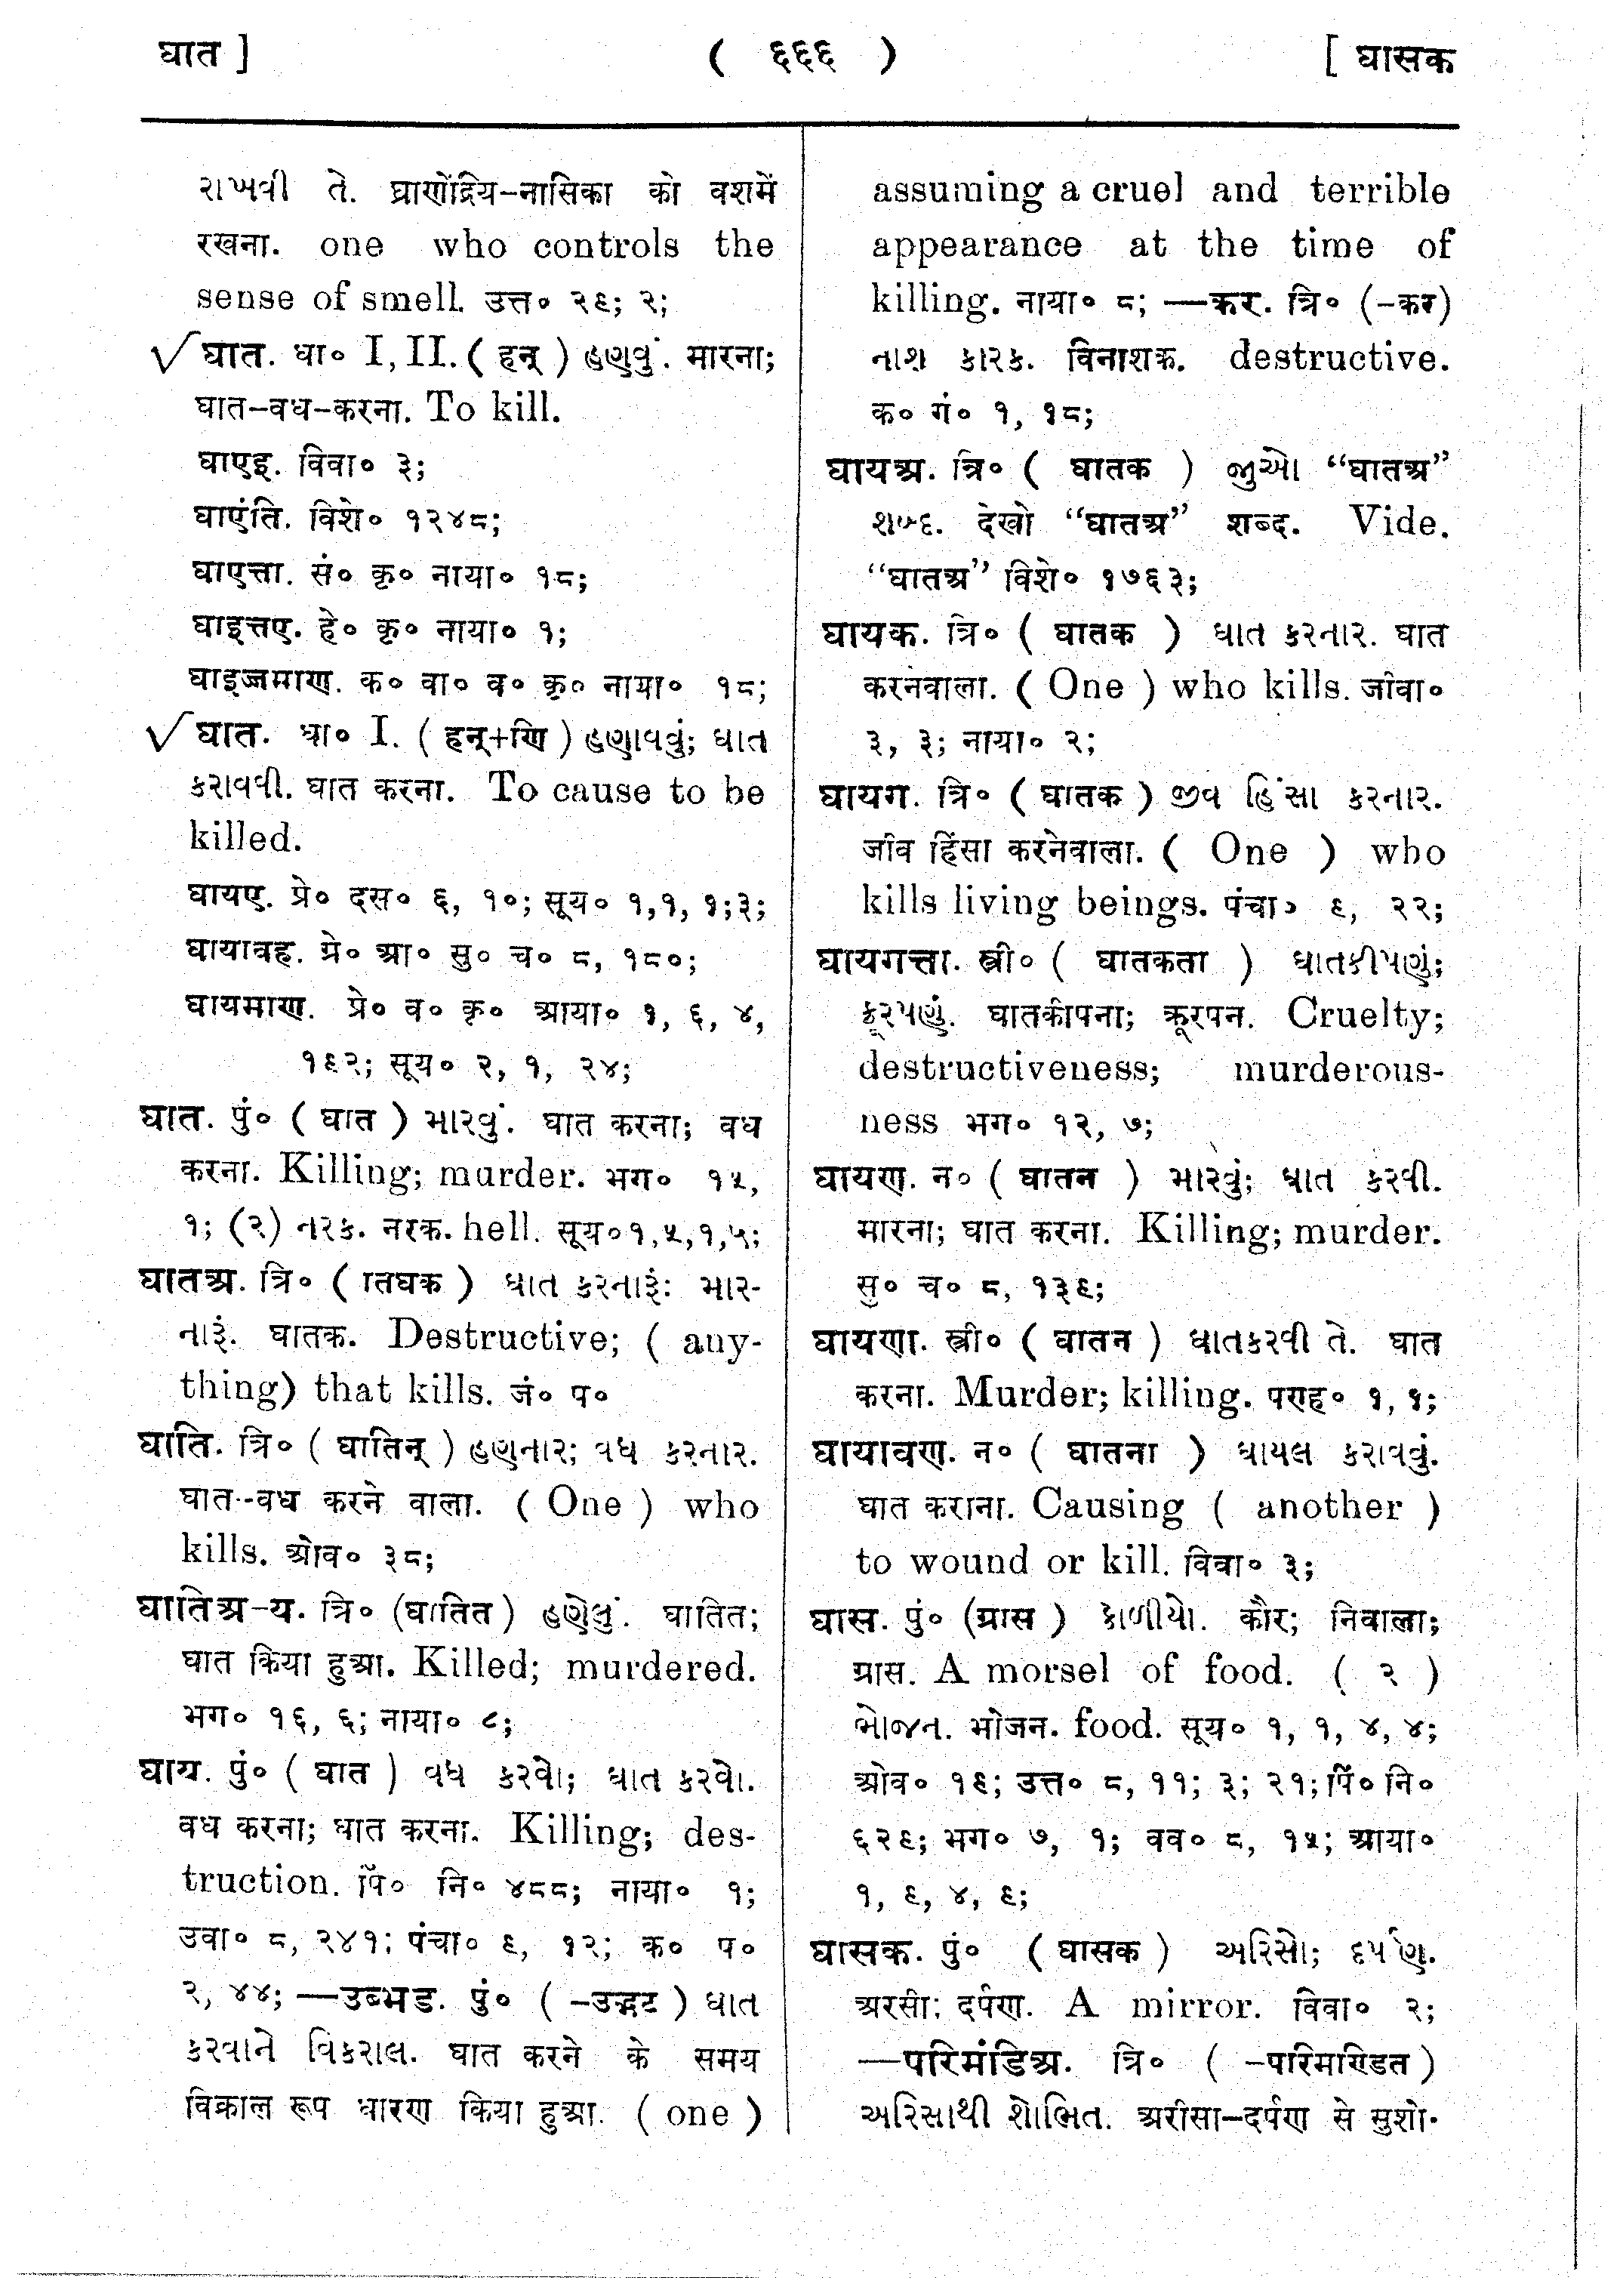 घात ]
( ६६६ )
[ घासक
રાખવી તે. घ्राणेंद्रिय-नासिका को वशमें
रखना. one who controls the
sense of smell. उत्त० २६; २;
√ घात. धा० I, II. ( हन् ) હણવું. मारना;
घात-वध-करना. To kill.
घाएइ. विवा० ३;
घाएंति. विशे० १२४८;
घाएत्ता. सं० कृ० नाया० १८;
घाइत्तए. हे० कृ० नाया० १;
घाइज्जमाण. क० वा० व० कृ० नाया० १८;
√ घात. धा० I. ( हन्+णि ) હણાવવું; ઘાત
કરાવવી. घात करना. To cause to be
killed.
घायए. प्रे० दस० ६, १०; सूय० १,१, १;३;
घायावह. प्रे० आ० सु० च० ८, १८०;
घायमाण. प्रे० व० कृ० आया० १, ६, ४,
१६२; सूय० २, १, २४;
घात. पुं० ( घात ) મારવું. घात करना; वध
करना. Killing; murder. भग० १५,
१; (२) નરક. नरक. hell. सूय० १,५,१,५;
घातअ. त्रि० ( ातघक ) ઘાત કરનારૂં: માર-
નારૂં. घातक. Destructive; ( any-
thing) that kills. जं० प०
घाति. त्रि० ( घातिन् ) હણનાર; વધ કરનાર.
घात-वध करने वाला. ( One ) who
kills. ओव० ३८;
घातिअ-य. त्रि० (घातित ) હણેલું. घातित;
घात किया हुआ. Killed; murdered.
भग० १६, ६; नाया० ८;
घाय. पुं० ( घात ) વધ કરવો; ઘાત કરવો.
वध करना; घात करना. Killing; des-
truction. पिं० नि० ४८८; नाया० १;
उवा० ८, २४१; पंचा० ६, १२; क० प०
२, ४४; —उब्भड. पुं० ( -उद्भट ) ઘાત
કરવાને વિકરાલ. घात करने के समय
विक्राल रूप धारण किया हुआ. ( one )
assuming a cruel and terrible
appearance at the time of
killing. नाया० ८; —कर. त्रि० (-कर)
નાશ કારક. विनाशक. destructive.
क० गं० १, १८;
घायअ. त्रि० ( घातक ) જુઓ “घातअ”
શબ્દ. देखो “घातअ” शब्द. Vide.
“घातअ” विशे० १७६३;
घायक. त्रि० ( घातक ) ઘાત કરનાર. घात
करनवाला. ( One ) who kills. जीवा०
३, ३; नाया० २;
घायग. त्रि० ( घातक ) જીવ હિંસા કરનાર.
जीव हिंसा करनेवाला. ( One ) who
kills living beings. पंचा० ६, २२;
घायगत्ता. स्त्री० ( घातकता ) ઘાતકીપણું;
ક્રૂરપણું. घातकीपना; क्रूरपन. Cruelty;
destructiveness; murderous-
ness भग० १२, ७;
घायण. न० ( घातन ) મારવું; ઘાત કરવી.
मारना; घात करना. Killing; murder.
सु० च० ८, १३६;
घायणा. स्त्री० ( घातन ) ઘાતકરવી તે. घात
करना. Murder; killing. पराह० १, १;
घायावण. न० ( घातना ) ઘાયલ કરાવવું.
घात कराना. Causing ( another )
to wound or kill. विवा० ३;
घास. पुं० (ग्रास ) કોળીયો. कौर; निवाला;
ग्रास. A morsel of food. ( २ )
ભોજન. भोजन. food. सूय० १, १, ४, ४;
ओव० १६; उत्त० ८, ११; ३; २१; पिं० नि०
६२६; भग० ७, १; वव० ८, १५; आया०
१, ६, ४, ६;
घासक. पुं० ( घासक ) અરિસો; દર્પણ.
अरसी; दर्पण. A mirror. विवा० २;
—परिमंडिअ. त्रि० ( -परिमण्डित )
અરિસાથી શોભિત. अरीसा-दर्पण से सुशो-